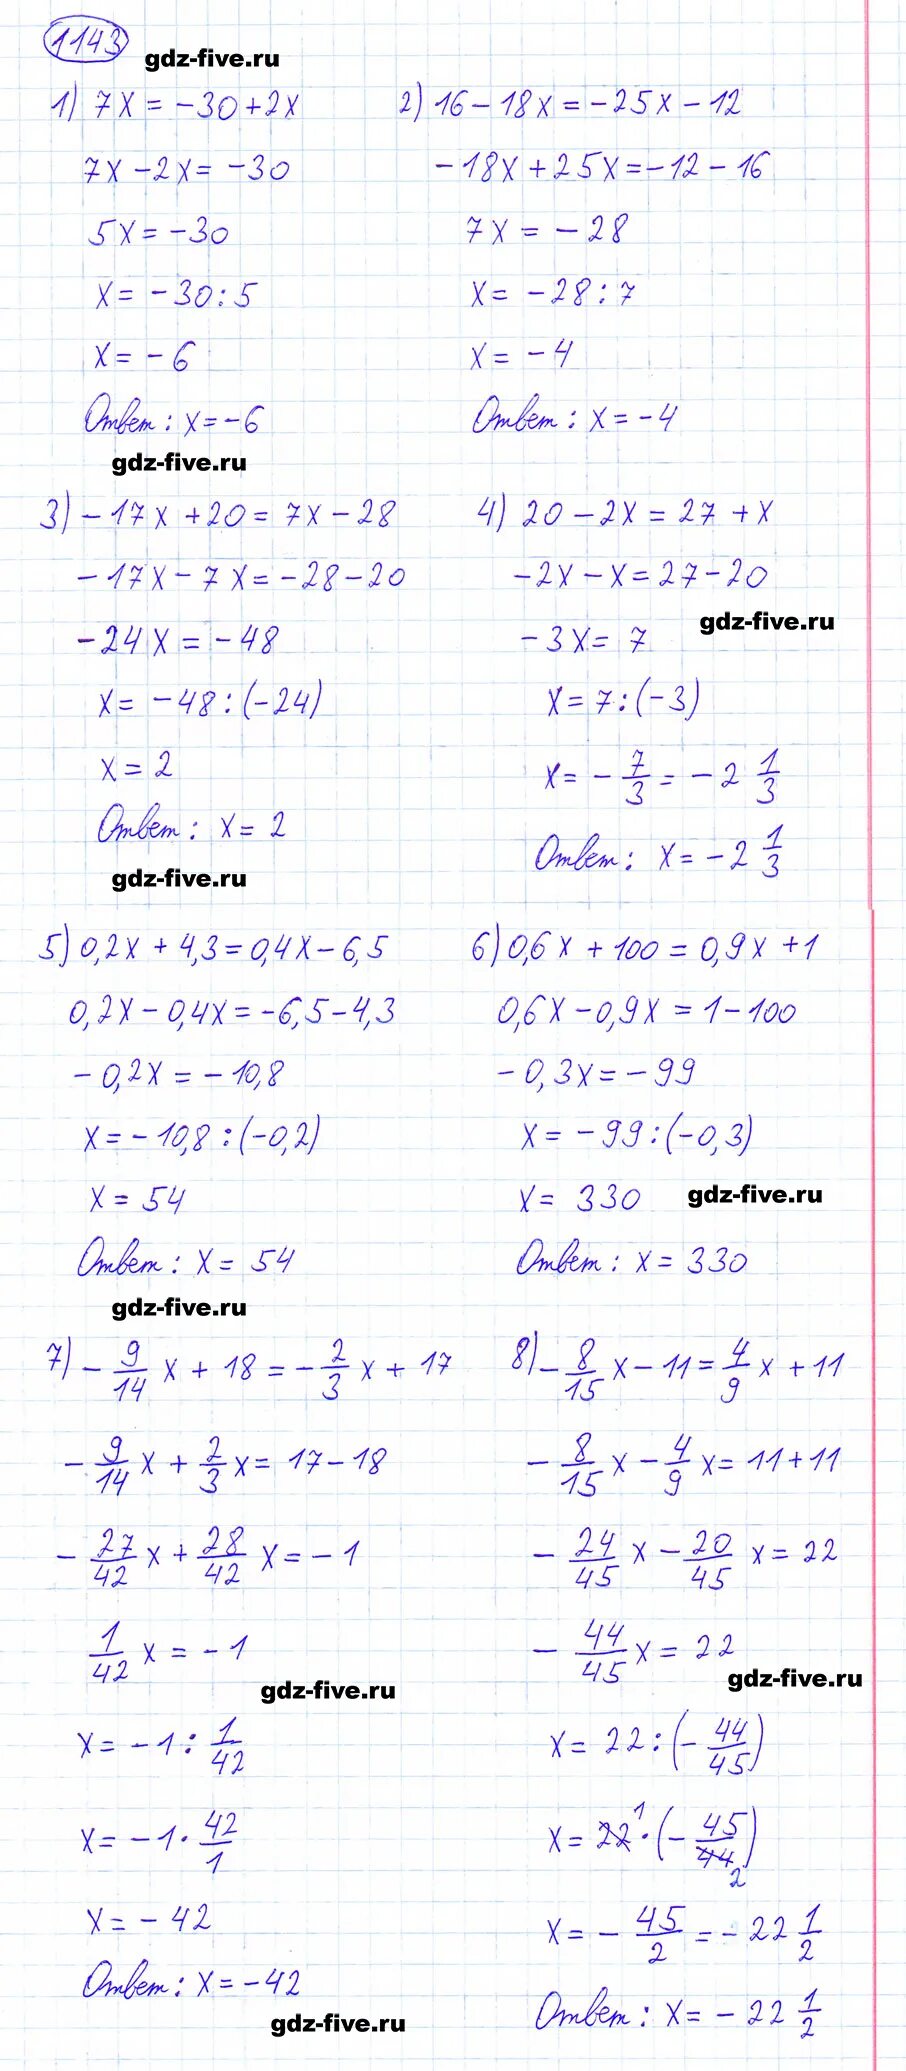 1143
gdz-five.ru
1) 7x = -30 + 2x
7x - 2x = -30
5x = -30
x = -30 : 5
x = -6
Ответ: x = -6
gdz-five.ru
2) 16 - 18x = -25x - 12
-18x + 25x = -12 - 16
7x = -28
x = -28 : 7
x = -4
Ответ: x = -4
3) -17x + 20 = 7x - 28
-17x - 7x = -28 - 20
-24x = -48
x = -48 : (-24)
x = 2
Ответ: x = 2
gdz-five.ru
4) 20 - 2x = 27 + x
-2x - x = 27 - 20
gdz-five.ru
-3x = 7
x = 7 : (-3)
x = -7/3 = -2 1/3
Ответ: x = -2 1/3
5) 0,2x + 4,3 = 0,4x - 6,5
0,2x - 0,4x = -6,5 - 4,3
-0,2x = -10,8
x = -10,8 : (-0,2)
x = 54
Ответ: x = 54
gdz-five.ru
6) 0,6x + 100 = 0,9x + 1
0,6x - 0,9x = 1 - 100
-0,3x = -99
x = -99 : (-0,3)
x = 330
gdz-five.ru
Ответ: x = 330
7) -9/14 x + 18 = -2/3 x + 17
-9/14 x + 2/3 x = 17 - 18
-27/42 x + 28/42 x = -1
1/42 x = -1
gdz-five.ru
x = -1 : 1/42
x = -1 · 42/1
x = -42
Ответ: x = -42
gdz-five.ru
8) -8/15 x - 11 = 4/9 x + 11
-8/15 x - 4/9 x = 11 + 11
-24/45 x - 20/45 x = 22
-44/45 x = 22
gdz-five.ru
x = 22 : (-44/45)
x = 22 1 · (-45/44 2)
x = -45/2 = -22 1/2
Ответ: x = -22 1/2